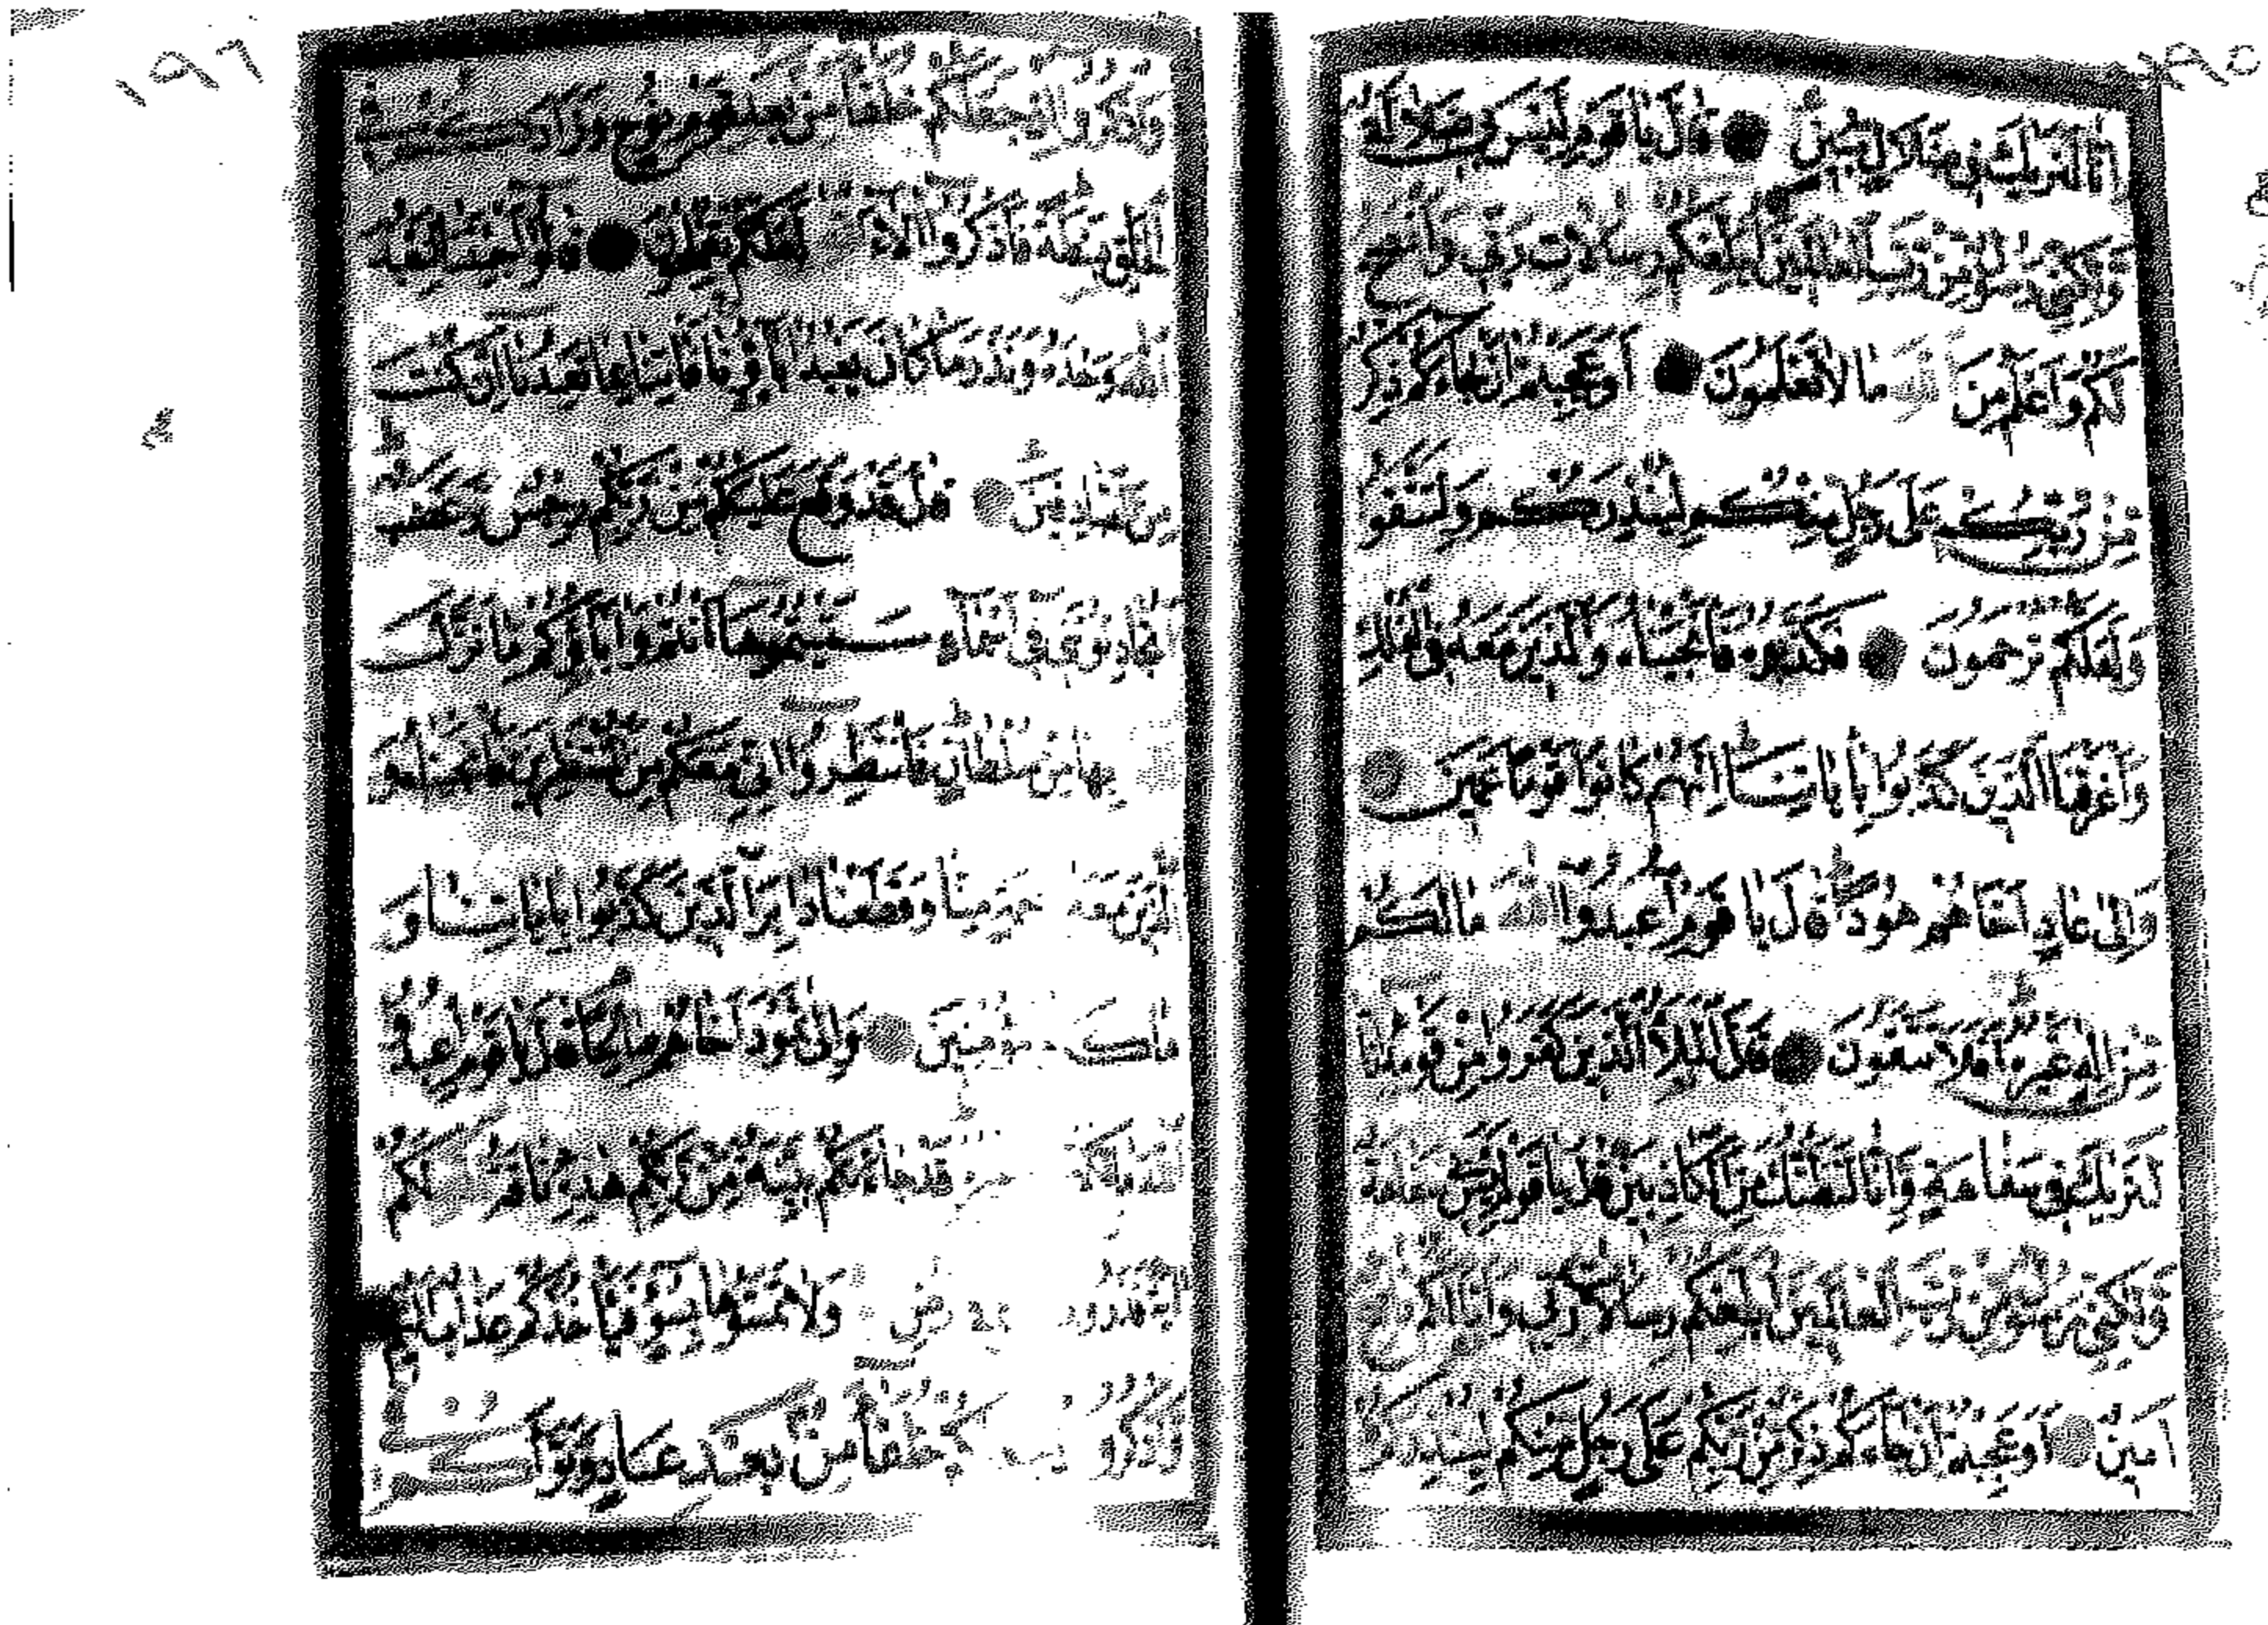 ١٩٥
إنا لنريك في ضلال مبين قال يا قوم ليس بي ضلالة
ولكني رسول من رب العالمين أبلغكم رسالات ربي وأنصح
لكم وأعلم من الله ما لا تعلمون أوعجبتم أن جاءكم ذكر
من ربكم على رجل منكم لينذركم ولتتقوا
ولعلكم ترحمون فكذبوه فأنجيناه والذين معه في الفلك
وأغرقنا الذين كذبوا بآياتنا إنهم كانوا قوما عمين
وإلى عاد أخاهم هودا قال يا قوم اعبدوا الله ما لكم
من إله غيره أفلا تتقون قال الملأ الذين كفروا من قومه إنا
لنريك في سفاهة وإنا لنظنك من الكاذبين قال يا قوم ليس بي سفاهة
ولكني رسول من رب العالمين أبلغكم رسالات ربي وأنا لكم ناصح
أمين أوعجبتم أن جاءكم ذكر من ربكم على رجل منكم لينذركم
١٩٦
واذكروا إذ جعلكم خلفاء من بعد قوم نوح وزادكم
في الخلق بصطة فاذكروا آلاء الله لعلكم تفلحون قالوا أجئتنا لنعبد
الله وحده ونذر ما كان يعبد آباؤنا فأتنا بما تعدنا إن كنت
من الصادقين قال قد وقع عليكم من ربكم رجس وغضب
أتجادلونني في أسماء سميتموها أنتم وآباؤكم ما نزل
الله بها من سلطان فانتظروا إني معكم من المنتظرين فأنجيناه و
الذين معه برحمة منا وقطعنا دابر الذين كذبوا بآياتنا و
ما كانوا مؤمنين وإلى ثمود أخاهم صالحا قال يا قوم اعبدوا
الله ما لكم من إله غيره قد جاءتكم بينة من ربكم هذه ناقة الله لكم
آية فذروها أرض ولا تمسوها بسوء فيأخذكم عذاب أليم
واذكروا إذ جعلكم خلفاء من بعد عاد وبوأكم